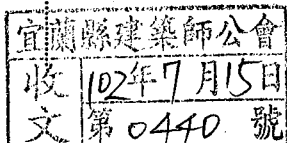 宜蘭縣建築師公會
收文
102年7月15日
第0440號